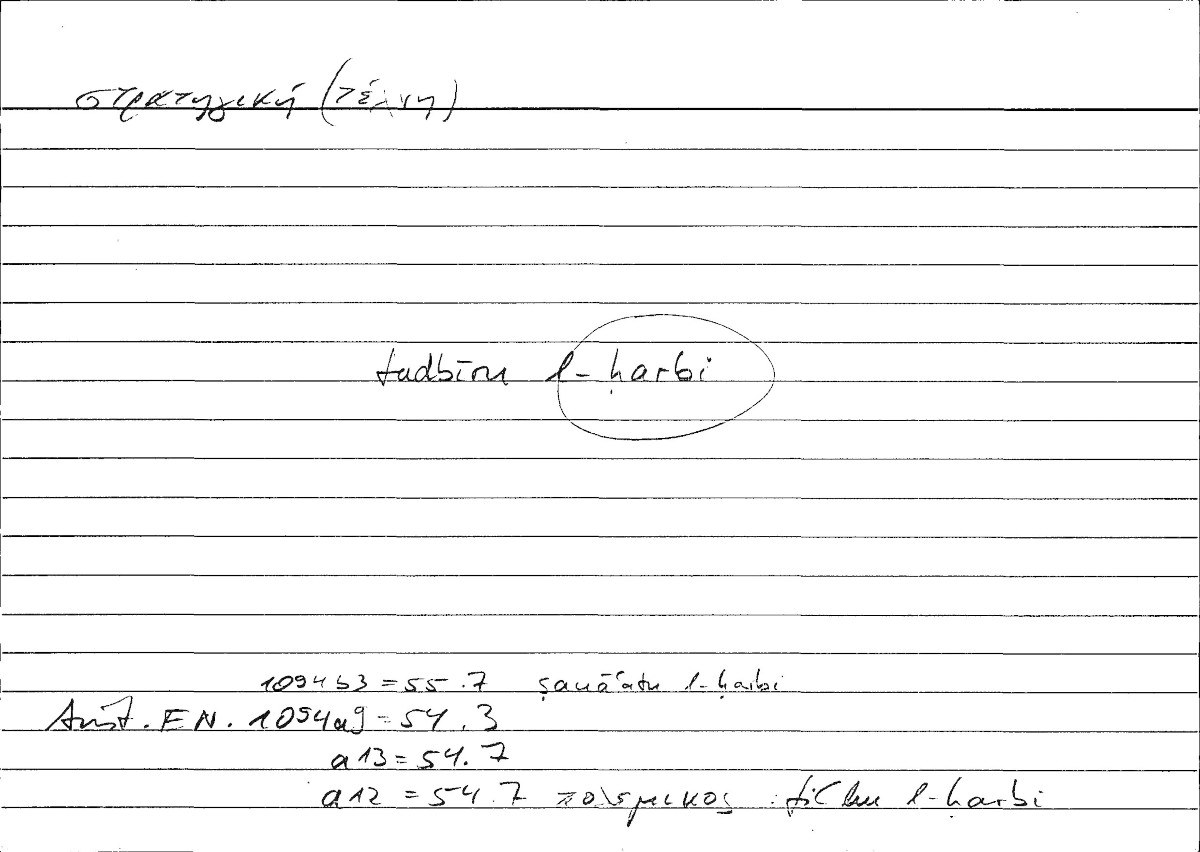 στρατηγική (τέχνη)
tadbīru l-ḥarbi
1094b3 = 55.7 ṣanāʿatu l-ḥarbi
Arist. EN. 1094a9 = 54.3
a13 = 54.7
a12 = 54.7 πολεμικος : fiʿlu l-ḥarbi